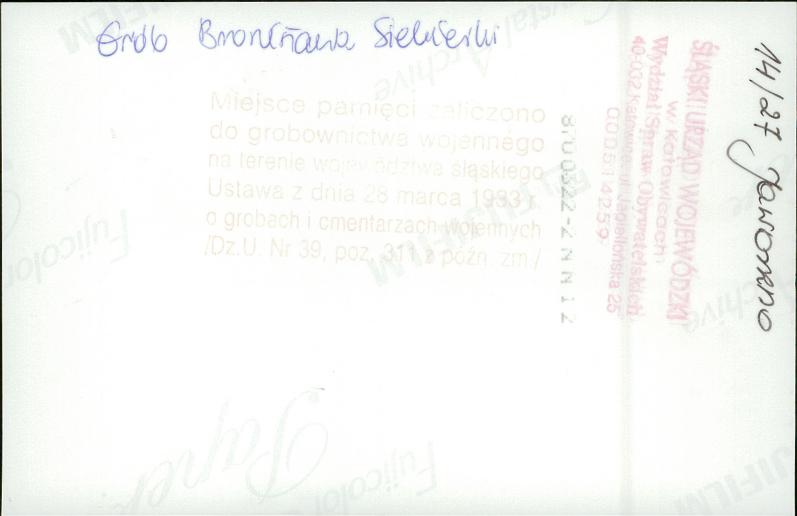 Grób Bronisława Siekierki
Miejsce pamięci zaliczono
do grobownictwa wojennego
na terenie województwa śląskiego
Ustawa z dnia 28 marca 1933 r.
o grobach i cmentarzach wojennych
/Dz.U. Nr 39, poz. 311 z późn. zm./
ŚLĄSKI URZĄD WOJEWÓDZKI
w Katowicach
Wydział Spraw Obywatelskich
40-032 Katowice, ul. Jagiellońska 25
000514259
14/27 Jaworzno
FUJIFILM
Crystal Archive
Fujicolor
Paper